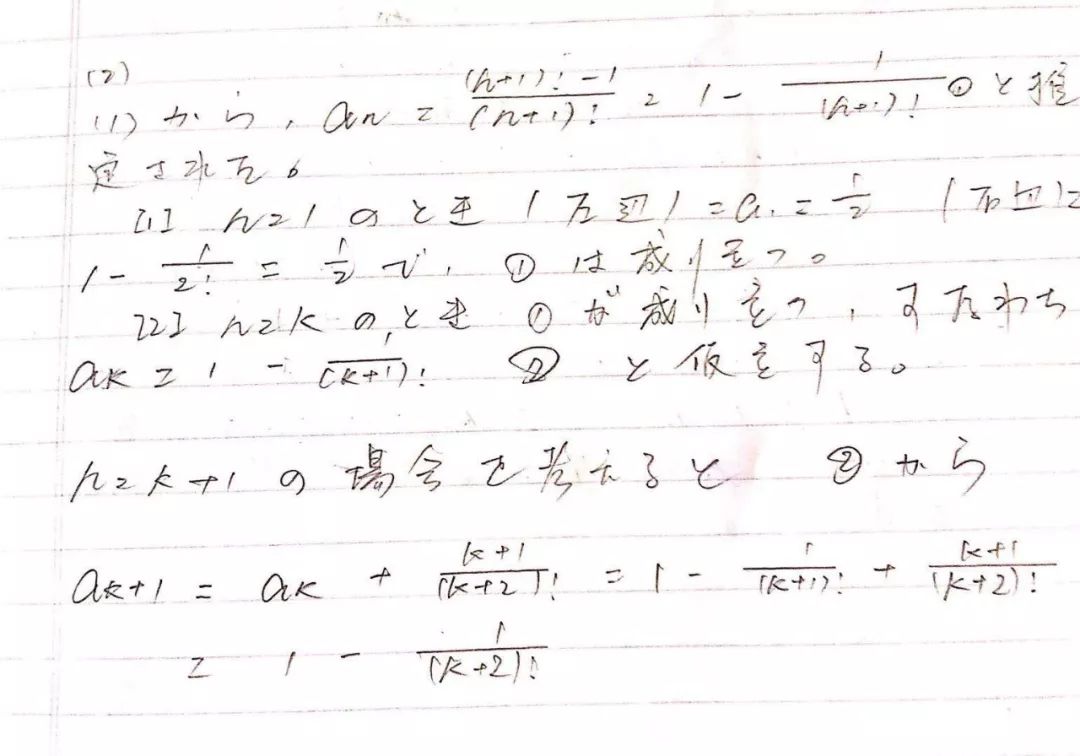 (2)
(1) から, an = ((n+1)! - 1)/(n+1)! = 1 - 1/(n+1)! ① と推
定される。
[1] n=1 のとき (左辺) = a1 = 1/2 (右辺) =
1 - 1/2! = 1/2 で, ① は成り立つ。
[2] n=k のとき ① が成り立つ, すなわち
ak = 1 - 1/(k+1)! ② と仮定する。
n=k+1 の場合を考えると ② から
ak+1 = ak + (k+1)/(k+2)! = 1 - 1/(k+1)! + (k+1)/(k+2)!
= 1 - 1/(k+2)!